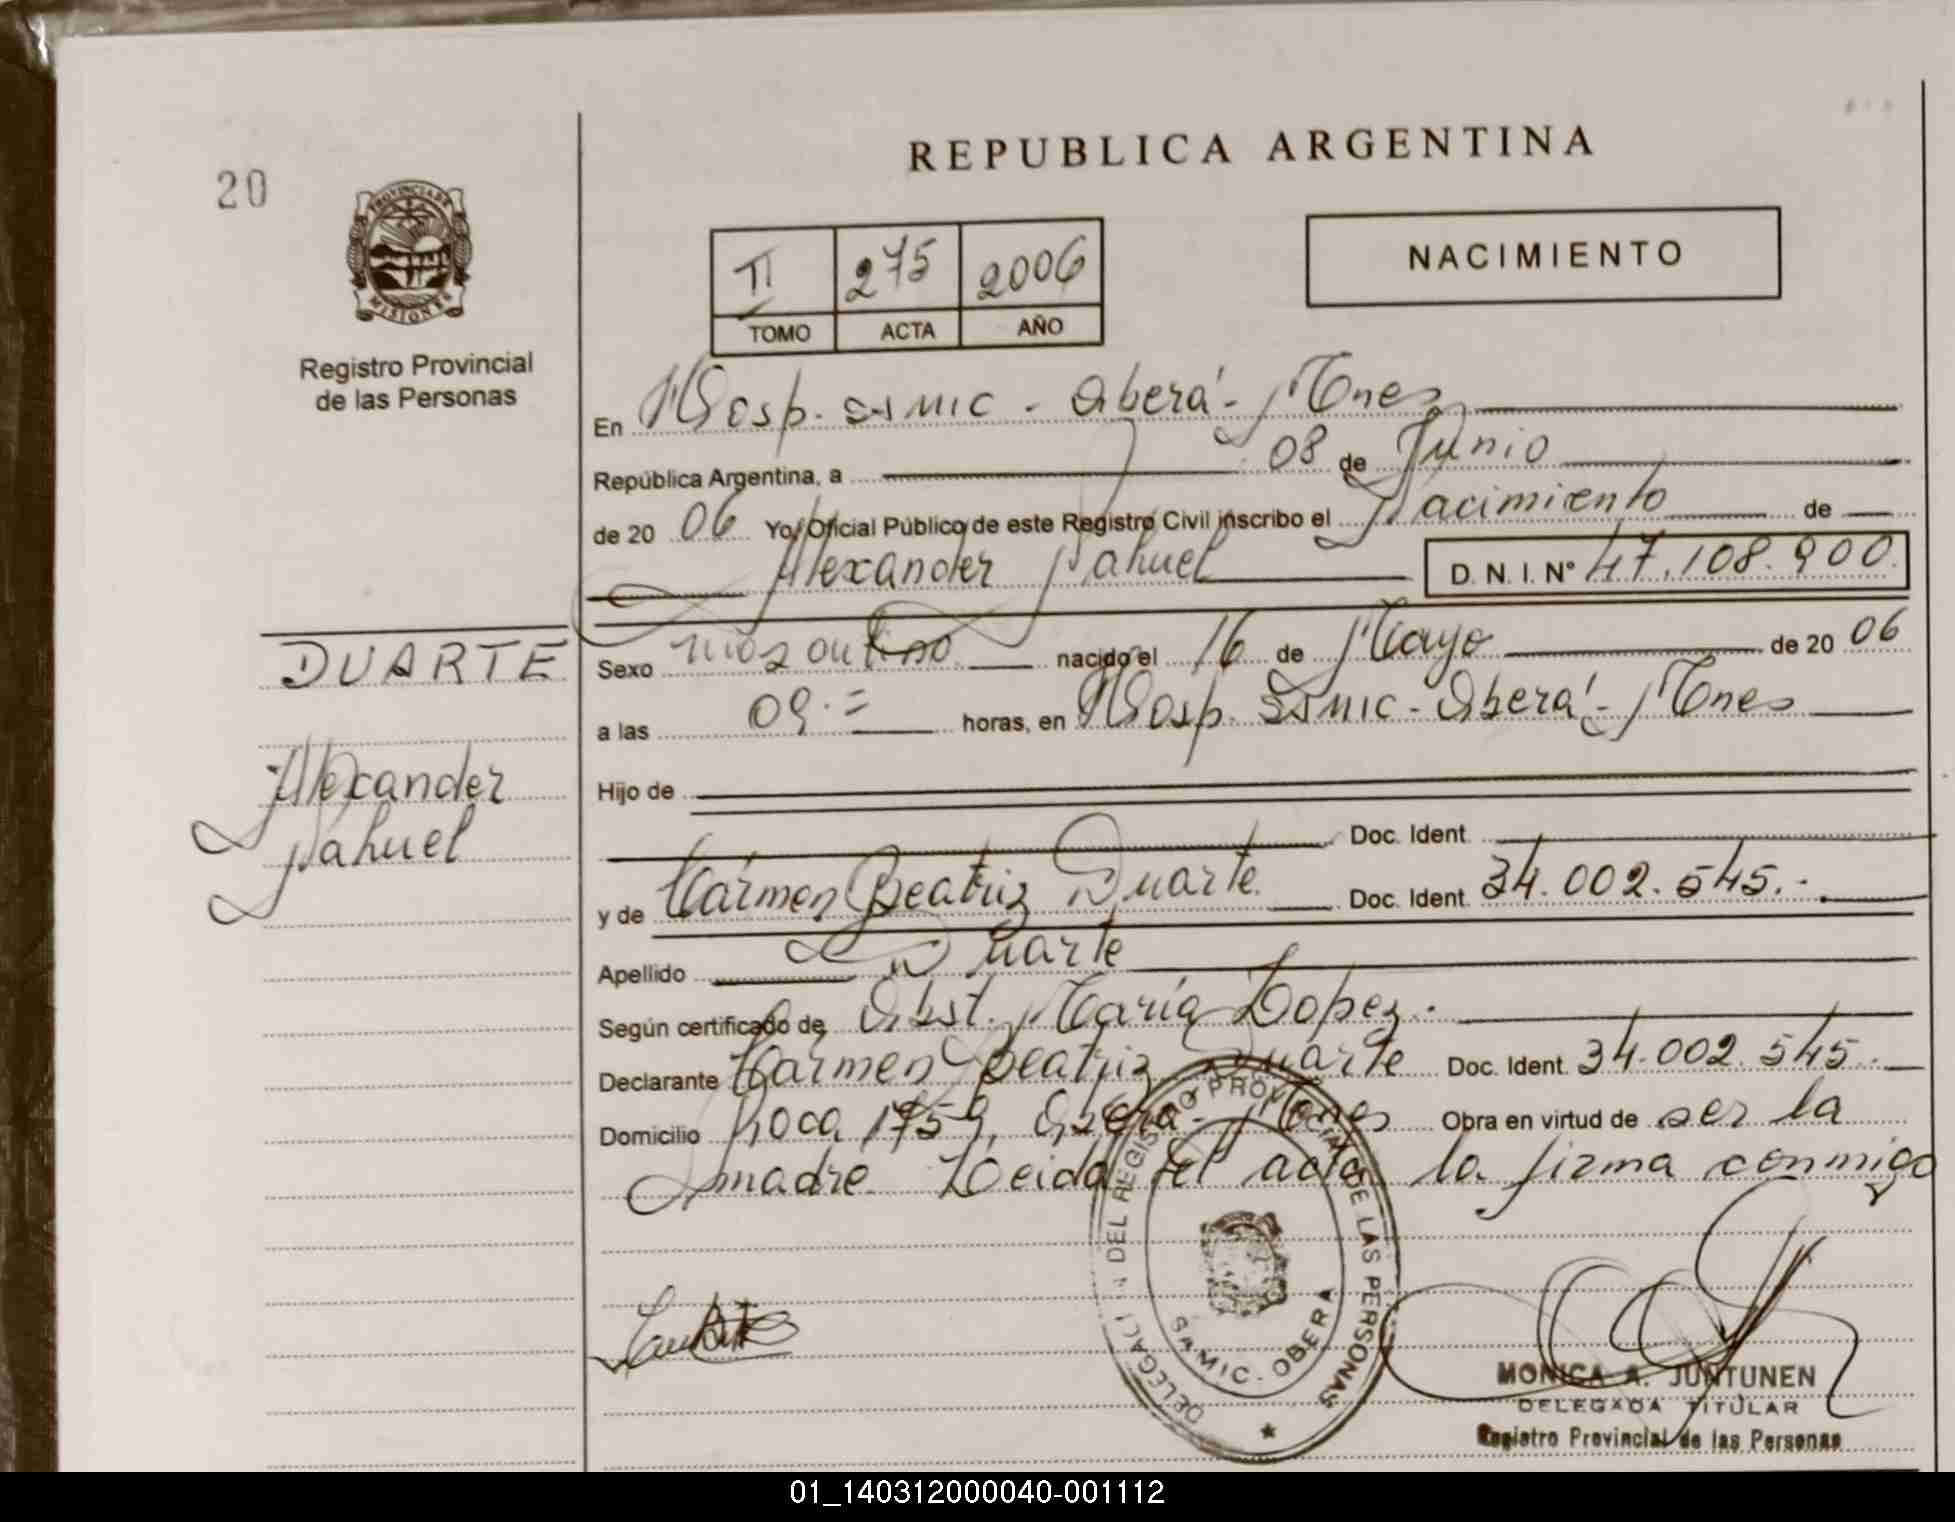 REPUBLICA ARGENTINA
20
PROVINCIA DE
MISIONES
Registro Provincial
de las Personas
II 275 2006
TOMO ACTA AÑO
NACIMIENTO
En Hosp. SAMIC - Oberá - Mnes
República Argentina, a 08 de Junio
de 20 06 Yo, Oficial Público de este Registro Civil inscribo el Nacimiento de
Alexander Nahuel D. N. I. Nº 47.108.900
DUARTE
Alexander
Nahuel
Sexo masculino nacido el 16 de Mayo de 20 06
a las 09.= horas, en Hosp. SAMIC - Oberá - Mnes
Hijo de
Doc. Ident.
y de Carmen Beatriz Duarte Doc. Ident. 34.002.545.-
Apellido Duarte
Según certificado de Obst. María Lopez.
Declarante Carmen Beatriz Duarte Doc. Ident. 34.002.545.-
Domicilio Roca 1759, Oberá - Mnes Obra en virtud de ser la
madre. Leida el acta la firma conmigo
DELEGACI N DEL REGISTRO PROVINCIAL DE LAS PERSONAS
SAMIC - OBERA
MONICA A. JUNTUNEN
DELEGADA TITULAR
Registro Provincial de las Personas
01_140312000040-001112